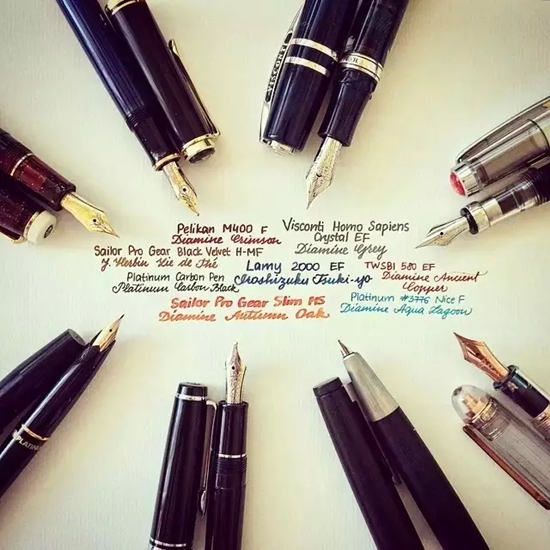 Pelikan M400 F
Diamine Crimson
Visconti Homo Sapiens
Crystal EF
Diamine Grey
Sailor Pro Gear Black Velvet H-MF
J. Herbin Lie de Thé
Lamy 2000 EF
Iroshizuku Tsuki-yo
TWSBI 580 EF
Diamine Ancient
Copper
Platinum Carbon Pen
Platinum Carbon Black
Sailor Pro Gear Slim MS
Diamine Autumn Oak
Platinum #3776 Nice F
Diamine Aqua Lagoon
VISCONTI
PLATINUM